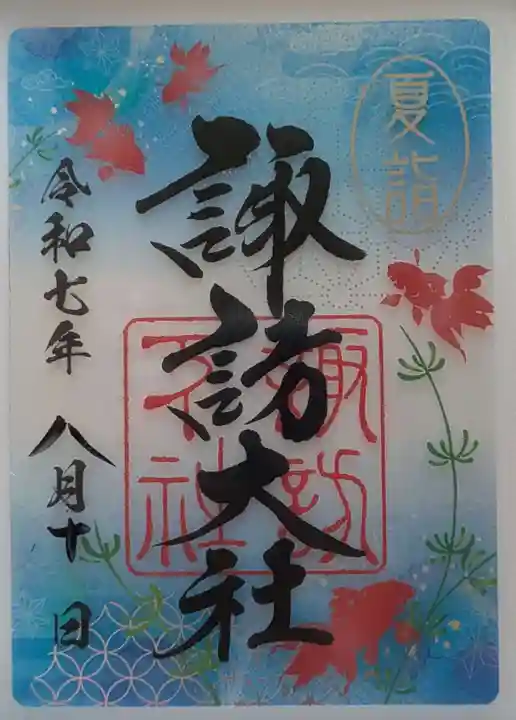 夏詣
諏訪大社
諏訪
大社
令和七年 八月十日